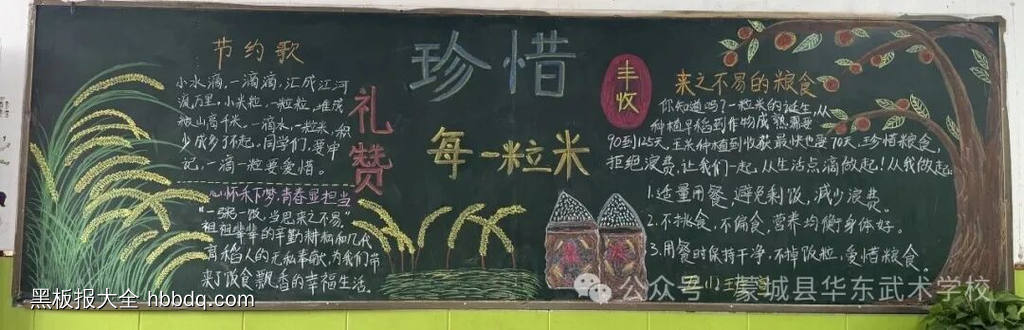 节约歌
小水滴,一滴滴,汇成江河
流万里,小米粒,一粒粒,堆成
被山高千米。一滴水,一粒米,积
少成多了不起。同学们,要牢
记,一滴一粒要爱惜。
心怀禾下梦,青春亚担当
“一粥一饭,当思来之不易”
祖祖辈辈的辛勤耕耘和几代
育稻人的无私奉献,为我们带
来了饭食飘香的幸福生活。
礼赞
珍惜
每一粒米
丰收
来之不易的粮食
你知道吗?一粒米的诞生,从
种植早稻到作物成熟需要
90到125天,玉米种植到收获最快也要70天,珍惜粮食,
拒绝浪费,让我们一起,从生活点滴做起!从我做起:
1.适量用餐,避免剩饭,减少浪费。
2.不挑食,不偏食,营养均衡身体好。
3.用餐时保持干净,不掉饭粒,爱惜粮食
黑板报大全 hbbdq.com
公众号 蒙城县华东武术学校